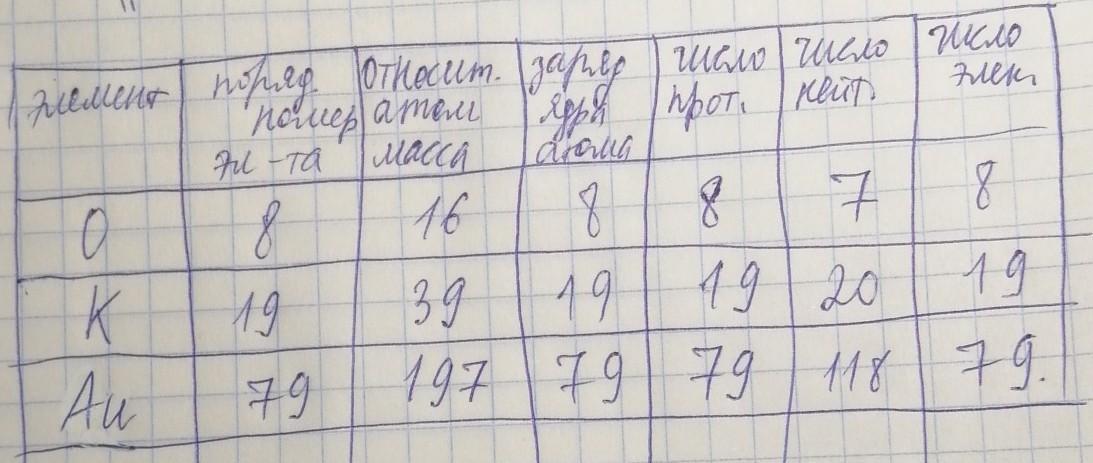 элемент поряд. номер эл-та относит. атом масса заряд ядра атома число прот. число нейт. число элек.
O 8 16 8 8 7 8
K 19 39 19 19 20 19
Au 79 197 79 79 118 79.